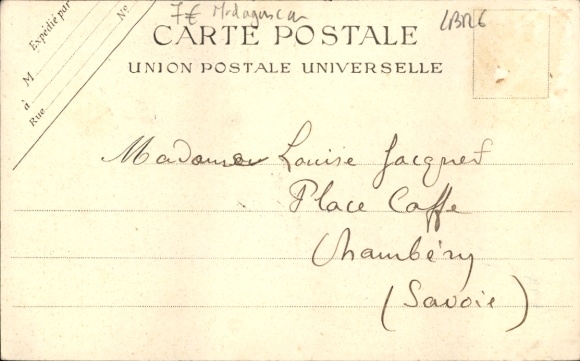 7€ Madagascar
CARTE POSTALE
UNION POSTALE UNIVERSELLE
Expédié par
M
à
Rue
No
Madame Louise Jacquet
Place Caffe
Chambéry
(Savoie)